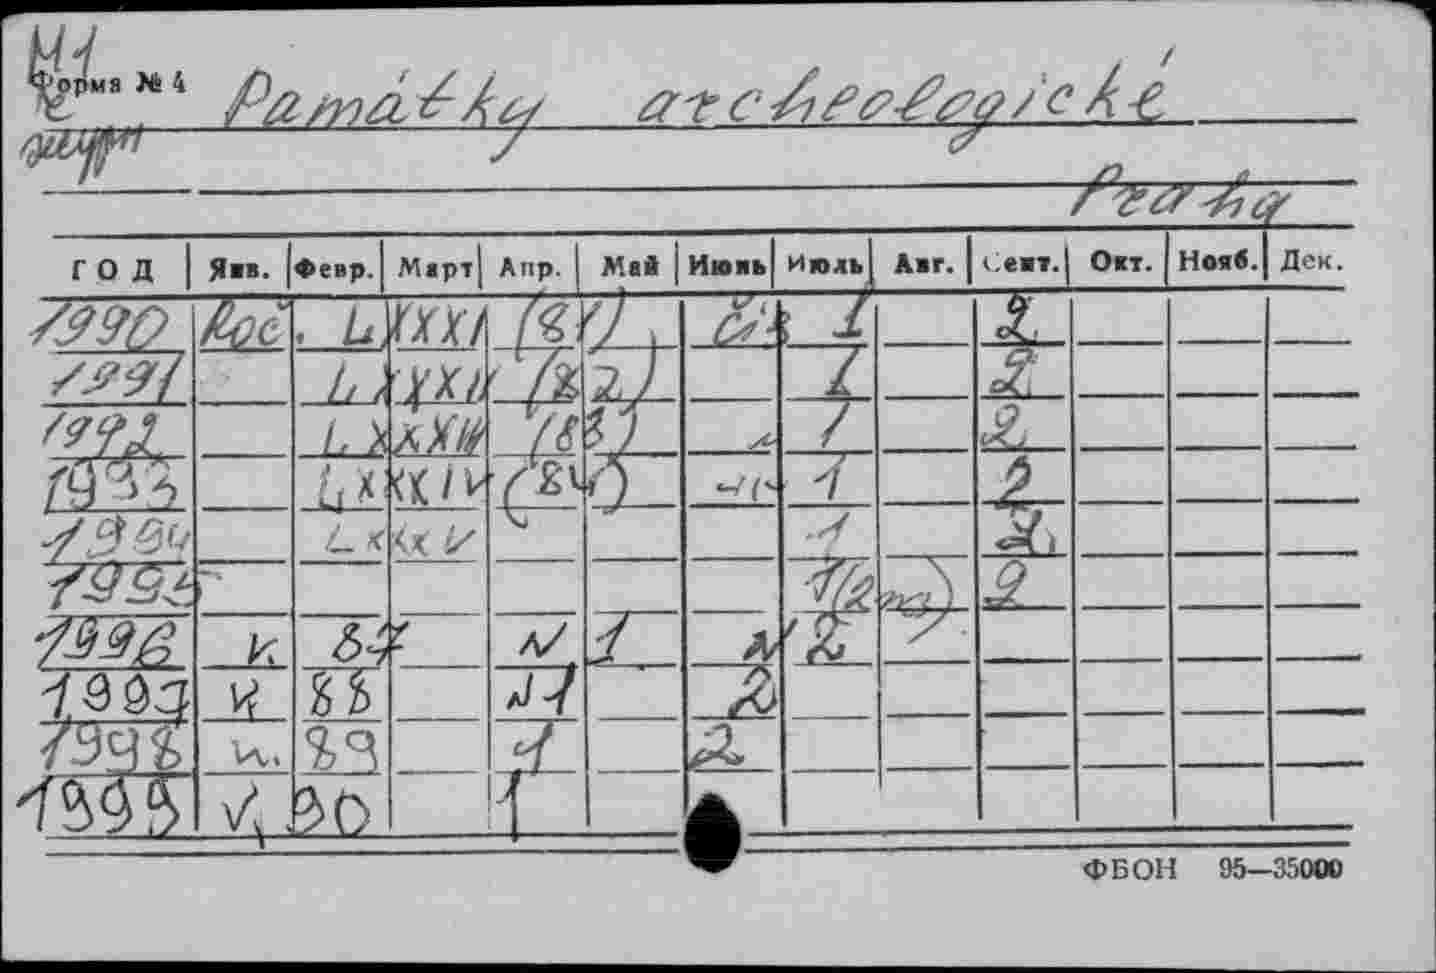 Форма № 4 Památky archeologické
Praha
ГОД Янв. Февр. Март Апр. Май Июнь Июль Авг. Сент. Окт. Нояб. Дек.
1990 Roč. LXXXI (81) 1 2
1991 LXXXII (82) 1 2
1992 LXXXIII (83) 1 2
1993 LXXXIV (84) 1 2
1994 LXXXV 1 2
1995 1/2 2
1996 87 N 1 N 2
1997 88 N1 2
1998 89 1 2
1999 90 1
ФБОН 95—35000